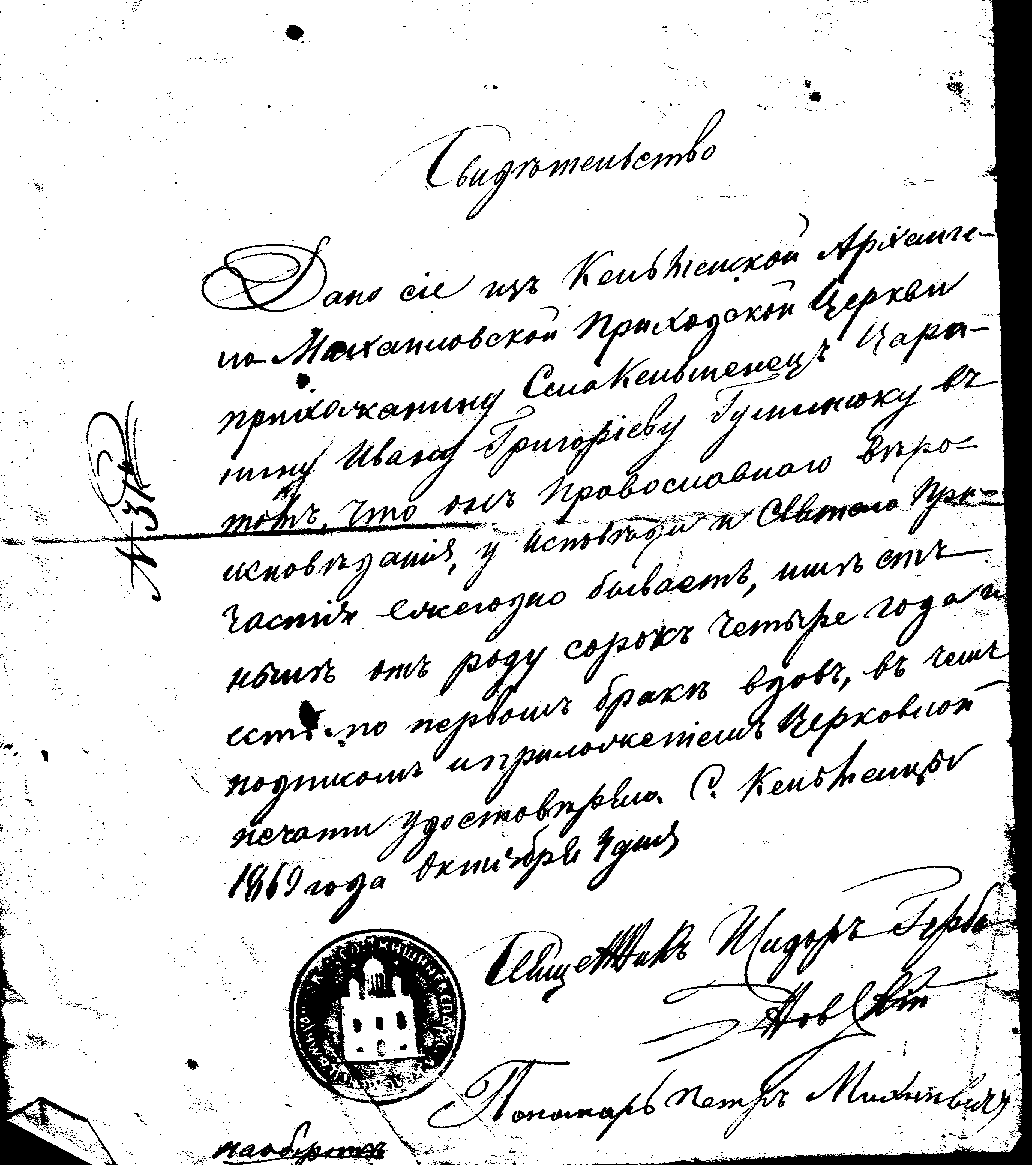 Свидѣтельство
Дано сіе изъ Кельменской Арханге-
ло-Михайловской Приходской Церкви
прихожанину Села Кельменецъ Цара-
нину Ивану Григоріеву въ
томъ, что онъ Православнаго вѣро-
исповѣданія, у исповѣди и Святаго При-
частія ежегодно бываетъ, имѣетъ
нынѣ отъ роду сорокъ четыре года и
есть по первомъ бракѣ вдовъ, въ чемъ
подписомъ и приложеніемъ Церковной
печати удостовѣряю. С. Кельменцы
1869 года Октября дня
Священникъ Исидоръ Герба
новскій
Пономарь Петръ Михневичъ
наоборотѣ